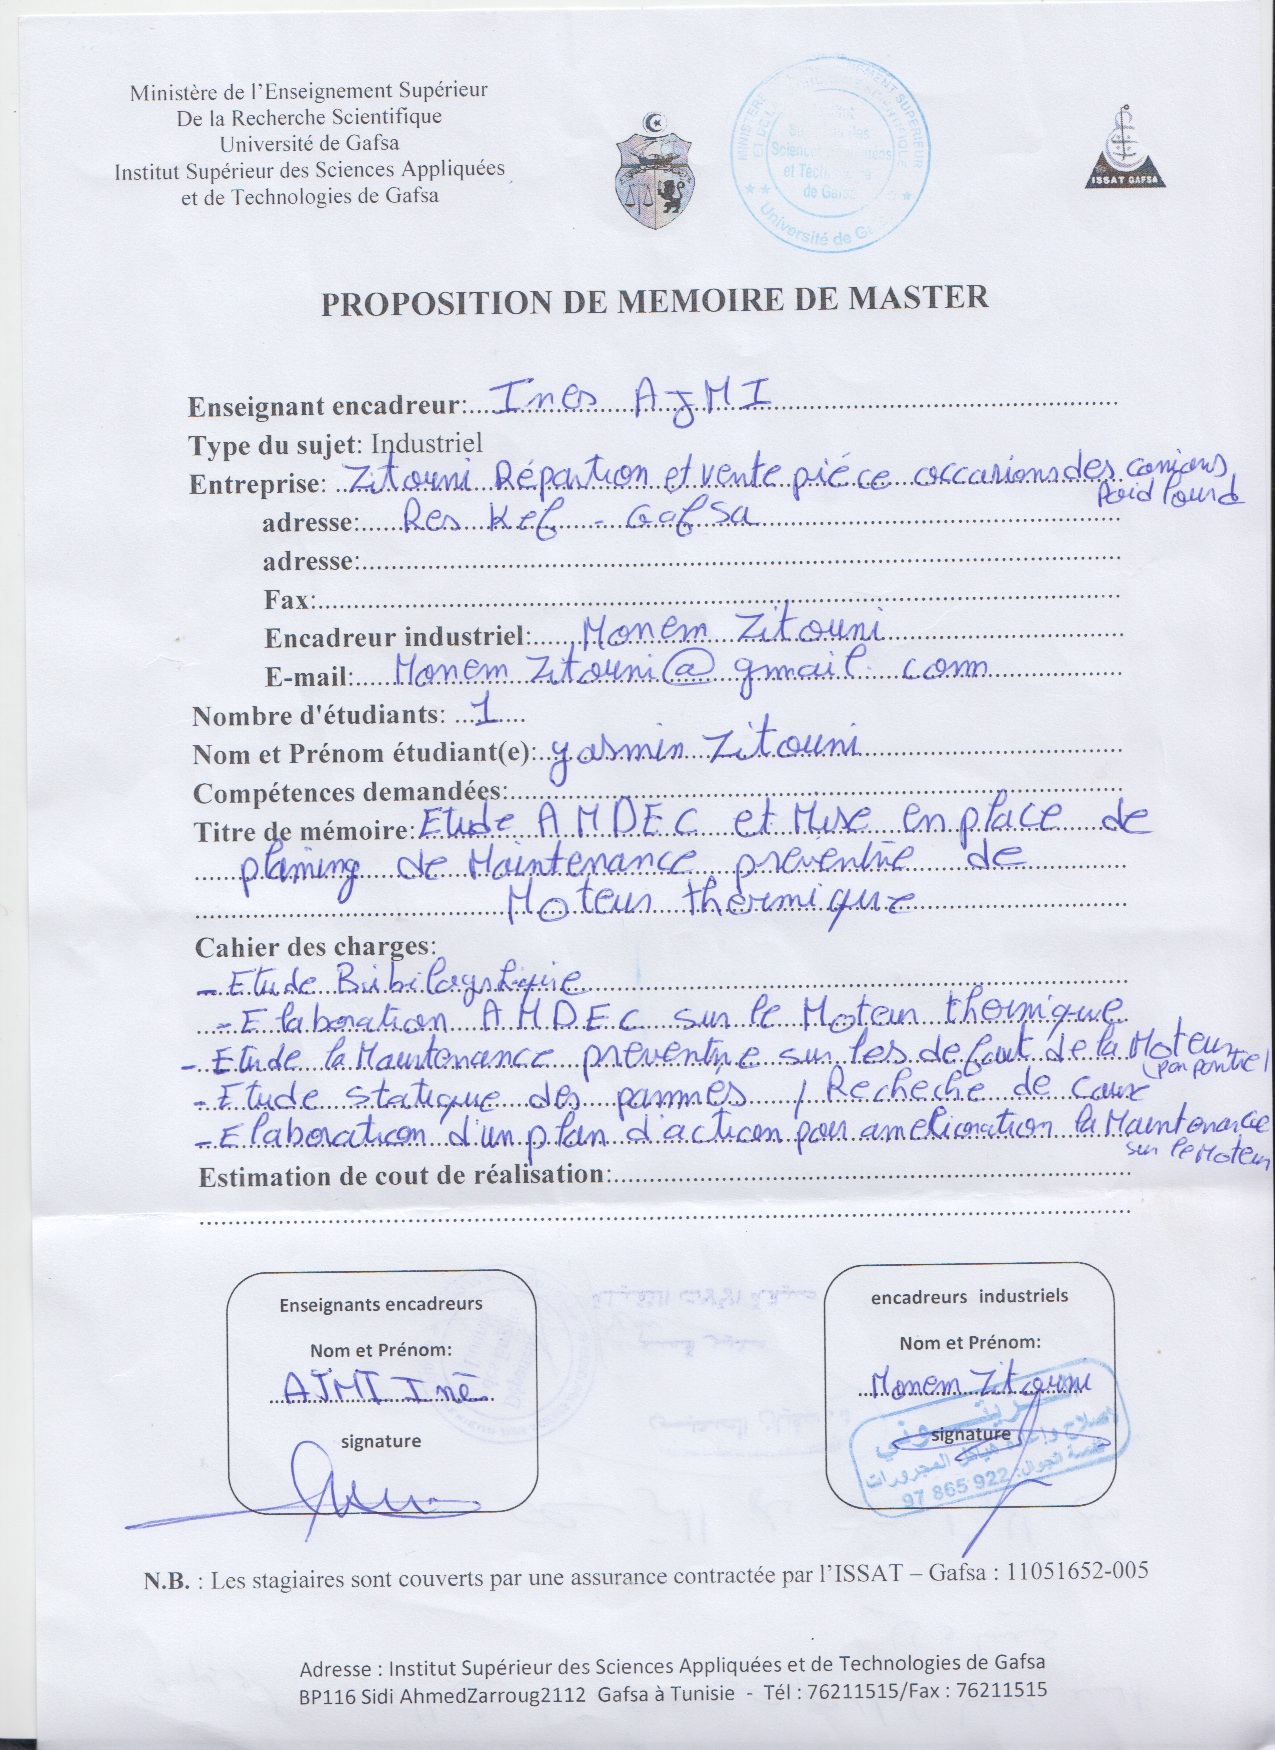 Ministère de l'Enseignement Supérieur
De la Recherche Scientifique
Université de Gafsa
Institut Supérieur des Sciences Appliquées
et de Technologies de Gafsa
Université de
ISSAT GAFSA
PROPOSITION DE MEMOIRE DE MASTER
Enseignant encadreur: Ines AJMI
Type du sujet: Industriel
Entreprise: Zitouni Répartion et vente piéce occasions des camions
Poid lourd
adresse: Res Kef - Gafsa
adresse:
Fax:
Encadreur industriel: Monem Zitouni
E-mail: Monem Zitouni@gmail.com
Nombre d'étudiants: 1
Nom et Prénom étudiant(e): yasmin Zitouni
Compétences demandées:
Titre de mémoire: Etude AMDEC et Mise en place de
planing de Maintenance preventive de
Moteur thermique
Cahier des charges:
- Etude
- Elaboration AMDEC sur le Moteur thermique
- Etude la Maintenance preventive sur les defaut de la Moteur
- Etude statique des pannes / Recheche de caux
- Elaboration d'un plan d'action pour amelioration la Maintenance
sur le Moteur
Estimation de cout de réalisation:
Enseignants encadreurs
Nom et Prénom:
AJMI Inè
signature
encadreurs industriels
Nom et Prénom:
Monem Zitouni
signature
97 865 922
N.B. : Les stagiaires sont couverts par une assurance contractée par l'ISSAT – Gafsa : 11051652-005
Adresse : Institut Supérieur des Sciences Appliquées et de Technologies de Gafsa
BP116 Sidi AhmedZarroug2112 Gafsa à Tunisie - Tél : 76211515/Fax : 76211515